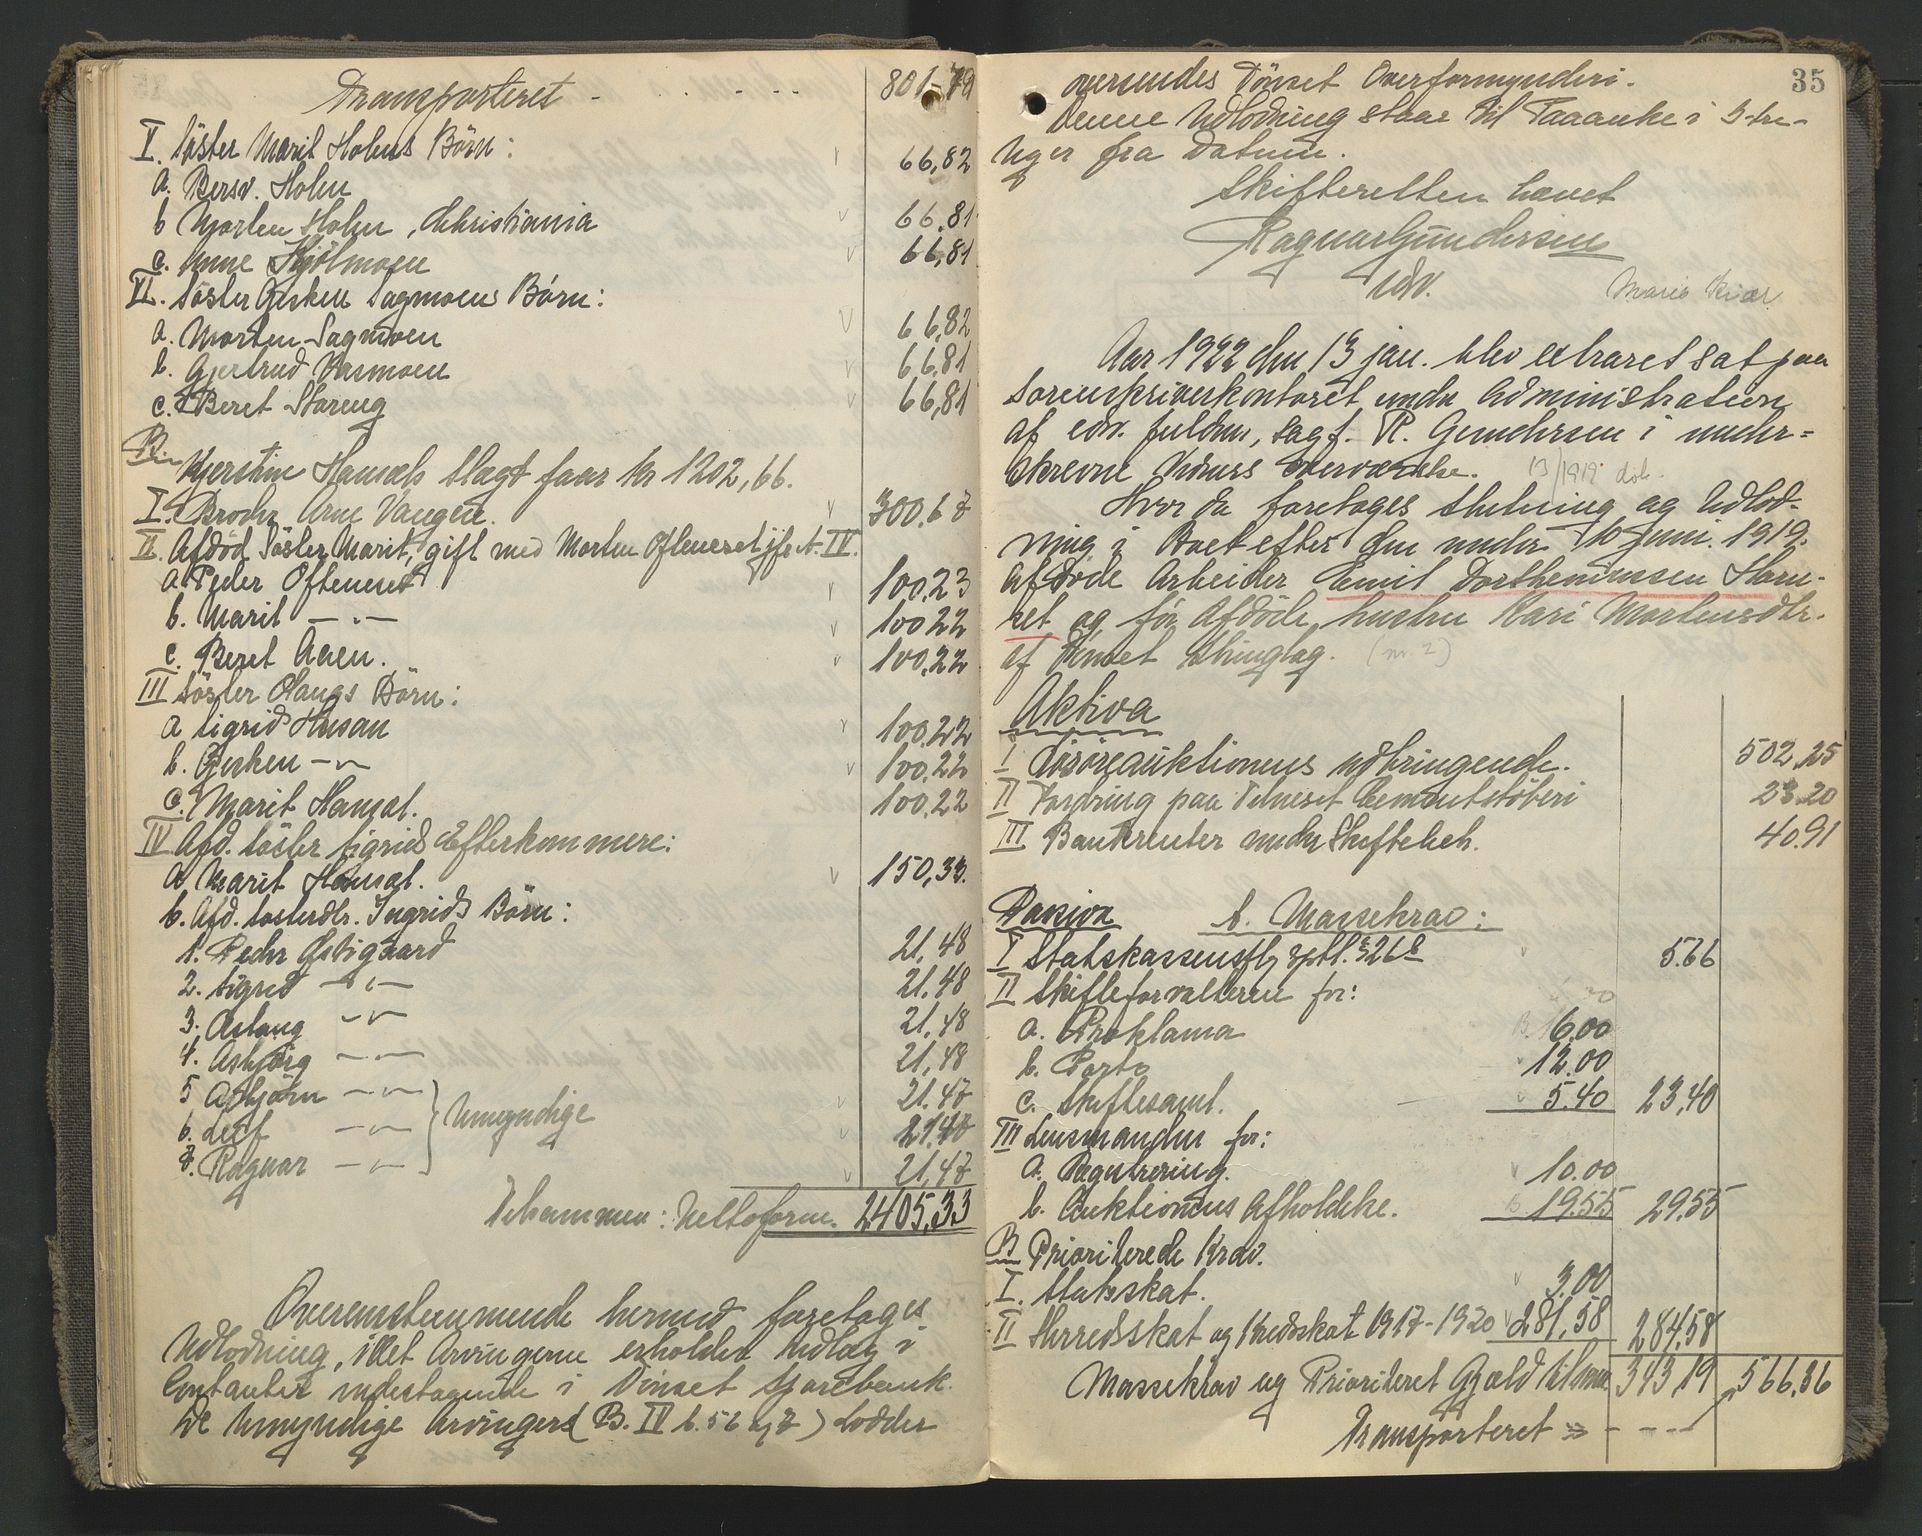 Transporteret - . . - . .  801-79
V. Söster Marit Holms Börn:
a. Bersv. Holm  66,82
b Morten Holm, Christiania  66,81
c. Anne Kjölmoen  66,81
VI. Söster Gjerken Sagmoens Börn:
a. Morten Sagmoen  66,82
b. Gjertrud Vasmoen  66,81
c. Beret Støreng  66,81
B.
Kjerstine Hansæls Slægt faar kr 1202,66.
I. Broder Arne Vangen.  300.67
II. Afdöd Söster Marit, gift med Morten Ofteneset jfr A. IV.
a Peder Ofteneset  100,23
b. Marit — „ —  100 22
c. Beret Aaen.  100.22
III Söster Haugs Börn:
a Sigrid Husan  100.22
b. Gjerken — „ —  100.22
c. Marit Hansæl.  100,22
IV Afd. Söster Sigrids Efterkommere:
a Marit Hansæl.  150,33.
b. Afd. Sösterdtr. Ingrids Börn:
1. Peder Østigaard  21,48
2. Sigrid — „ —  21.48
3. Aslaug — „ —  21,48
4. Asbjörg — „ —  21,48
5 Asbjörn — „ —  21.47
6. Leif — „ — } Umyndige  21.47
7. Ragnar — „ —  21,47
Tilsammen: Nettoform. 2405,33
Overensstemmende hermed foretages
Udlodning, idet Arvingerne erholder Udlæg i
Contanter indestaaende i Tönset Sparebank.
De Umyndige Arvingers (B. IV b. 5 6 og 7) Lodder
35
oversendes Tönset Overformynderi.
Denne Udlodning staar til Paaanke i 3-tre-
Uger fra Datum.
Skifteretten hævet
Ragnar Gundersen
edv.
Marie Kiær
Aar 1922 den 13 jan. blev extraret sat paa
Sorenskriverkontoret under Administration
af edv. fuldm., sagf. R. Gundersen i under-
skrevne Vidners Overværelse. 13/1919 död.
Hvor da foretoges Slutning og Udlod-
ning i Boet efter den under 10 juni. 1919.
afdöde Arbeider Emil Dorthenussen Stam-
set og för afdöde hustru Kari Mortensdtr.
af Tönset Thinglag. (nr. 2)
Aktiva
I Lösöreauktionens udbringende.  502,25
II Fordring paa Telneset Cementstöberi  23.20
III Bankrenter under Skiftebeh.  40.91
Passiva  A. Massekrav:
I Statskassen  5.66
II Skifteforvalteren for:
a. Proklama  6.00
b. Porto  12.00
c. Skiftesaml.  5.40  23,40
III Lensmanden for:
a. Registrering.  10.00
b. Auktionens Afholdelse.  19.55  29.55
B Prioriterede Krav.
I. Statsskat.  3.00
II Herredsskat og Kredsskat 1917-1920  281,58  284,58
Massekrav og Prioriteret Gjæld tilsam  343,19  566,36
Transporteret